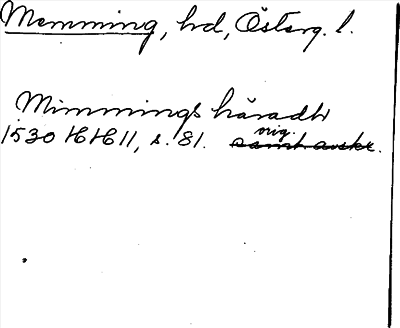 Memming, hrd, Österg. l.
Mimmings häradh
orig.
1530 HH 11, s. 81. samt avskr.